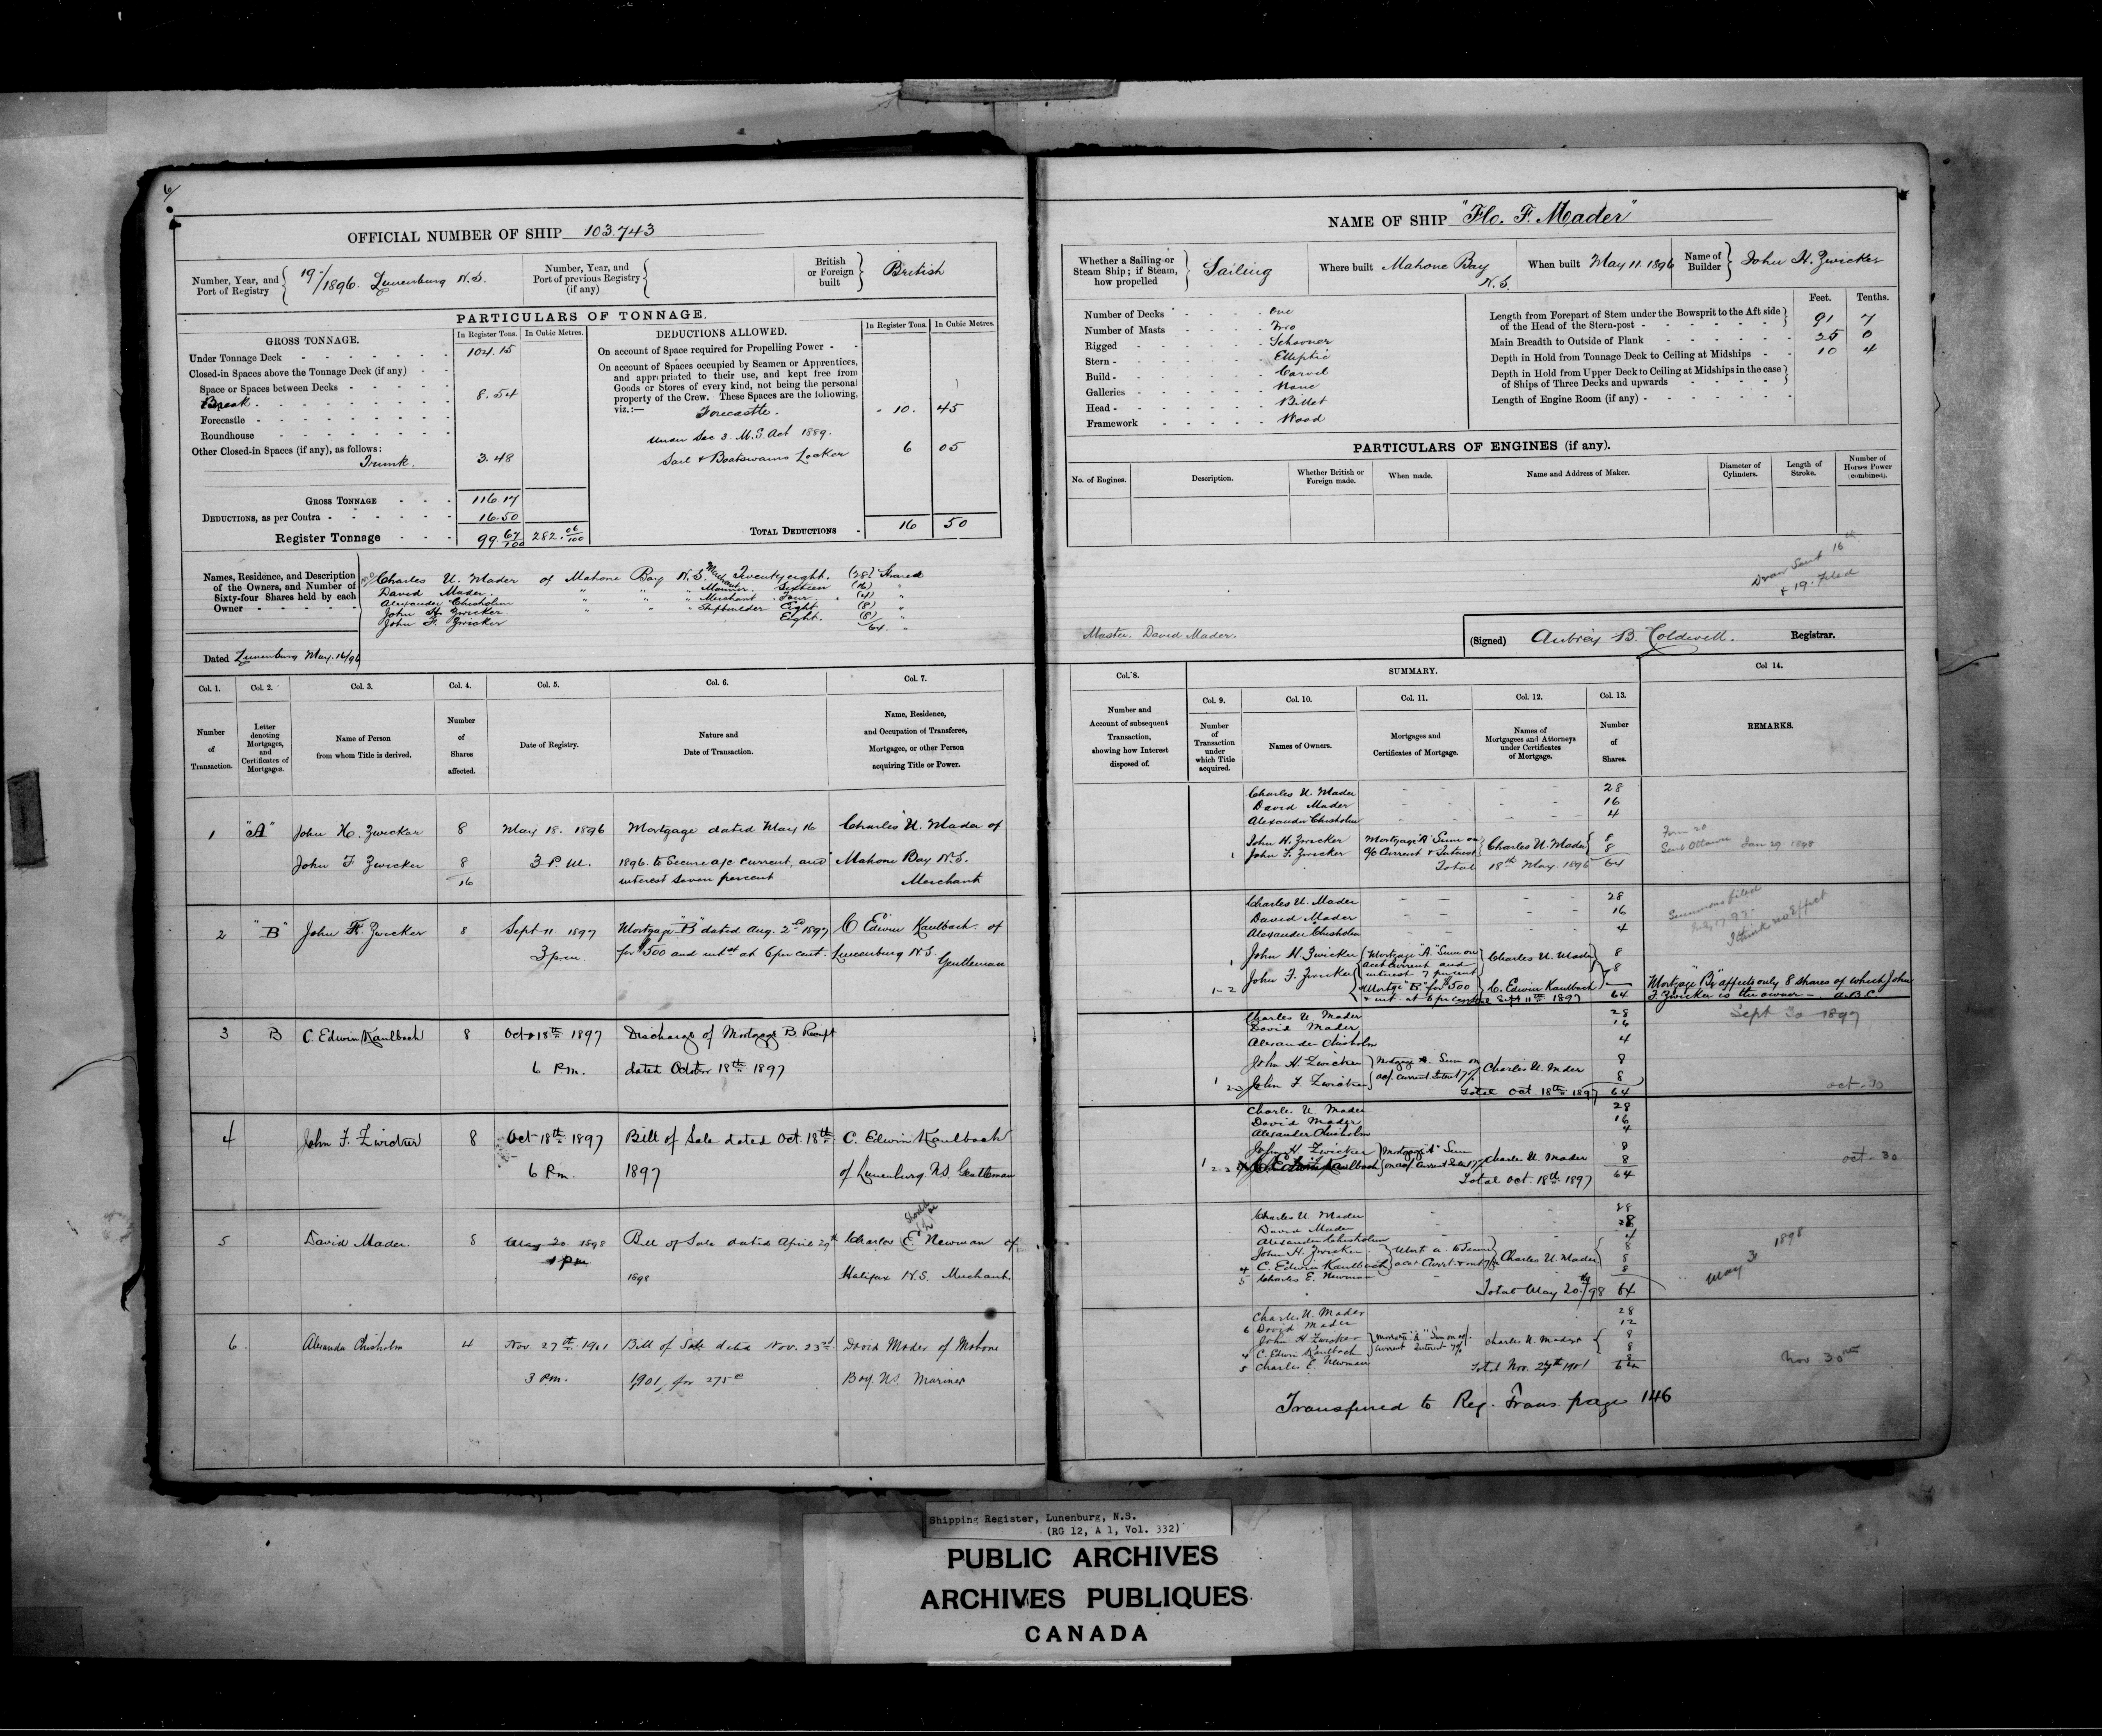 6/
OFFICIAL NUMBER OF SHIP 103.743
Number, Year, and Port of Registry
19/1896. Lunenburg N.S.
Number, Year, and Port of previous Registry (if any)
British or Foreign built
British
PARTICULARS OF TONNAGE.
GROSS TONNAGE.
In Register Tons. In Cubic Metres.
Under Tonnage Deck 104.15
Closed-in Spaces above the Tonnage Deck (if any)
Space or Spaces between Decks
Break 8.54
Forecastle
Roundhouse
Other Closed-in Spaces (if any), as follows:
Trunk. 3.48
GROSS TONNAGE 116.17
DEDUCTIONS, as per Contra 16.50
Register Tonnage 99.67/100 282.06/100
DEDUCTIONS ALLOWED.
In Register Tons. In Cubic Metres.
On account of Space required for Propelling Power
On account of Spaces occupied by Seamen or Apprentices,
and appropriated to their use, and kept free from
Goods or Stores of every kind, not being the personal
property of the Crew. These Spaces are the following,
viz.:—
Forecastle. 10. 45
Under Sec 3. M.S. Act 1889.
Sail & Boatswains Locker 6 05
TOTAL DEDUCTIONS 16 50
Names, Residence, and Description
of the Owners, and Number of
Sixty-four Shares held by each
Owner
Charles U. Mader of Mahone Bay N.S. Merchant Twentyeight. (28) Shares
David Mader. " " " Mariner. Sixteen (16) "
Alexander Chisholm " " " Merchant Four. (4) "
John H. Zwicker. " " " Shipbuilder Eight (8) "
John F. Zwicker Eight. (8) "
64. "
Dated Lunenburg May. 16/96
Col. 1. Col. 2. Col. 3. Col. 4. Col. 5. Col. 6. Col. 7.
Number of Transaction.
Letter denoting Mortgages, and Certificates of Mortgages.
Name of Person from whom Title is derived.
Number of Shares affected.
Date of Registry.
Nature and Date of Transaction.
Name, Residence, and Occupation of Transferee, Mortgagee, or other Person acquiring Title or Power.
1 "A" John H. Zwicker 8 May 18. 1896 Mortgage dated May 16 Charles U. Mader of
John F Zwicker 8 3 P.M. 1896. to Secure a/c current, and Mahone Bay N.S.
16 interest seven percent Merchant
2 "B" John F. Zwicker 8 Sept 11 1897 Mortgage "B" dated Aug. 2nd 1897 C Edwin Kaulbach. of
3 p.m. for $500 and intst at 6 per cent. Lunenburg N.S.
Gentleman
3 B C. Edwin Kaulbach 8 Oct 18th 1897 Discharge of Mortgage B. Receipt
6 P.m. dated October 18th 1897
4 John F. Zwicker 8 Oct 18th 1897 Bill of Sale dated Oct. 18th C. Edwin Kaulbach
6 P.m. 1897 of Lunenburg. N.S. Gentleman
should be
5 David Mader. 8 May 20. 1898 Bill of Sale dated April 29th Charles E. Newman of
1 pm 1898 Halifax N.S. Merchant
6 Alexander Chisholm 4 Nov. 27th 1901 Bill of Sale dated Nov. 23rd. David Mader of Mahone
3 P.m. 1901, for 275 Bay. N.S. Mariner
NAME OF SHIP "Flo. F. Mader"
Whether a Sailing or Steam Ship; if Steam, how propelled
Sailing
Where built Mahone Bay N.S.
When built May 11. 1896
Name of Builder John H. Zwicker
Number of Decks One
Number of Masts Two
Rigged Schooner
Stern Elliptic
Build Carvel
Galleries None
Head Billet
Framework Wood
Feet. Tenths.
Length from Forepart of Stem under the Bowsprit to the Aft side
of the Head of the Stern-post 91 7
Main Breadth to Outside of Plank 25 0
Depth in Hold from Tonnage Deck to Ceiling at Midships 10 4
Depth in Hold from Upper Deck to Ceiling at Midships in the case
of Ships of Three Decks and upwards
Length of Engine Room (if any)
PARTICULARS OF ENGINES (if any).
No. of Engines. Description. Whether British or Foreign made. When made. Name and Address of Maker. Diameter of Cylinders. Length of Stroke. Number of Horses Power (combined).
Sent 16th
& 19. filed
Master. David Mader.
(Signed) Aubrey B. Coldwell. Registrar.
Col. 8. SUMMARY. Col 14.
Col. 9. Col. 10. Col. 11. Col. 12. Col. 13.
Number and Account of subsequent Transaction, showing how Interest disposed of.
Number of Transaction under which Title acquired.
Names of Owners.
Mortgages and Certificates of Mortgage.
Names of Mortgagees and Attorneys under Certificates of Mortgage.
Number of Shares.
REMARKS.
Charles U. Mader 28
David Mader 16
Alexander Chisholm 4
John H. Zwicker Mortgage "A" Sum on 8
1 John F. Zwicker a/c Current & Interest Charles U. Mader 8
Total 18th May 1896 64
Form 20
Sent Ottawa Jan 29 1898
Charles U. Mader 28
David Mader 16
Alexander Chisholm 4
1 John H. Zwicker Mortgage "A" Sum on Charles U. Mader 8
acct Current and
1-2 John F. Zwicker interest 7 percent 8
Mortge "B" for $500 C. Edwin Kaulbach
& int. at 6 per cent Sept 11th 1897 64
Summons filed
I think no effect
Mortgage "B" affects only 8 shares of which John
F. Zwicker is the owner — A.B.C
Sept 30 1897
Charles U. Mader 28
David Mader 16
Alexander Chisholm 4
John H. Zwicker Mortgage A. Sum on 8
1 2-3 John F. Zwicker a/c. Current Interest 7% Charles U. Mader 8
Total Oct. 18th 1897 64
Oct-30
Charles U. Mader 28
David Mader 16
Alexander Chisholm 4
John H. Zwicker Mortgage "A" Sum 8
C. Edwin Kaulbach on a/c. Current Int 7% Charles U. Mader 8
Total Oct. 18th. 1897 64
Oct-30
Charles U Mader 28
David Mader 8
Alexander Chisholm 4
John H. Zwicker 8
4 C. Edwin Kaulbach Charles U. Mader 8
5 Charles E. Newman 8
Total May 20th/98 64
May 31 1898
Charles U. Mader 28
6 David Mader 12
John H Zwicker Mortgage "A" Sum on a/c. 8
4 C. Edwin Kaulbach Current Interest 7% Charles U. Mader 8
5 Charles E. Newman 8
Total Nov. 27th 1901 64
Nov 30
Transferred to Reg. Trans. page 146
Shipping Register, Lunenburg, N.S.
(RG 12, A 1, Vol. 332)
PUBLIC ARCHIVES
ARCHIVES PUBLIQUES
CANADA